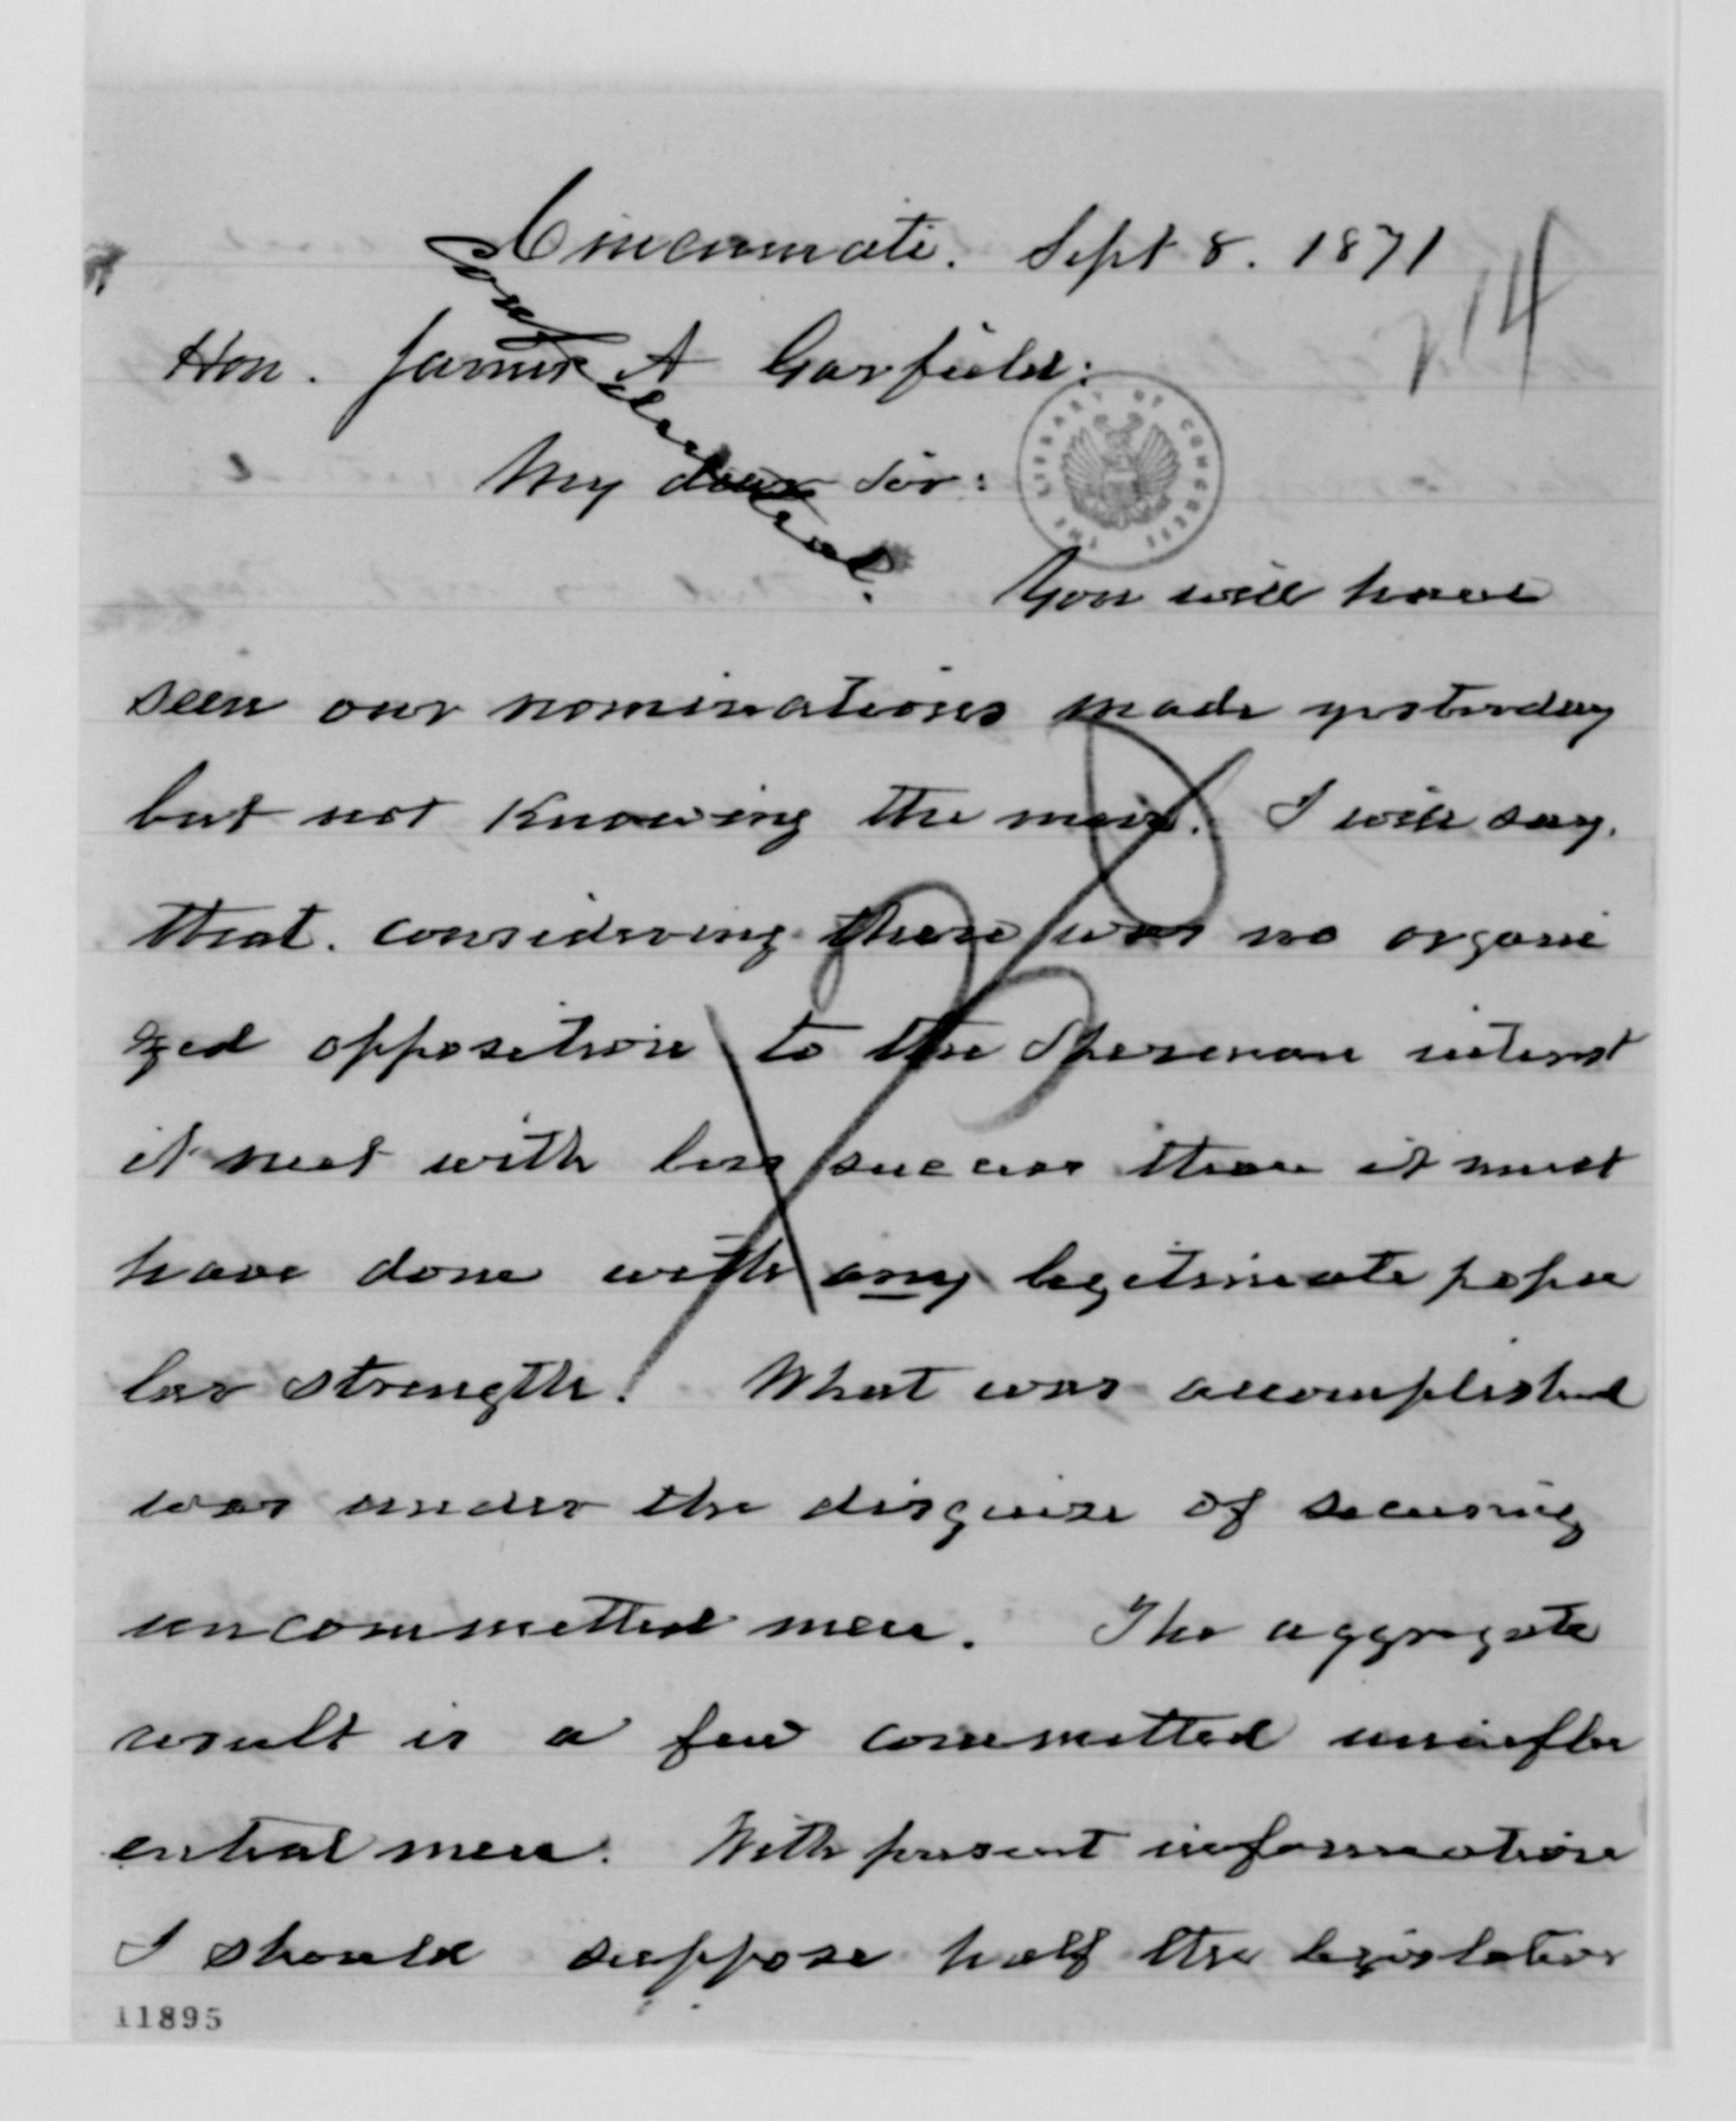 Cincinnati. Sept 8. 1871
Confidential.
714
Hon. James A Garfield:
My dear Sir:
THE LIBRARY OF CONGRESS
You will have
seen our nominations made yesterday
but not knowing the men. I will say.
that. considering there was no organi
zed opposition to the Sherman interest
it met with less success than it must
have done with any legitimate popu
lar strength. What was accomplished
was under the disguise of securing
uncommitted men. The aggregate
result is a few committed uninflu
ential men. With present information
I should suppose half the legislative
11895